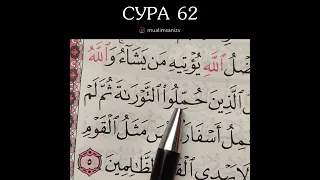 СУРА 62
mualimsanitv
ضْلُ ٱللَّهِ يُؤْتِيهِ مَن يَشَآءُ ۚ وَٱللَّهُ
ٱلَّذِينَ حُمِّلُوا۟ ٱلتَّوْرَىٰةَ ثُمَّ لَمْ
مِلُ أَسْفَارًا سَ مَثَلُ ٱلْقَوْمِ
يَهْدِى ٱلظَّـٰلِمِينَ ٥